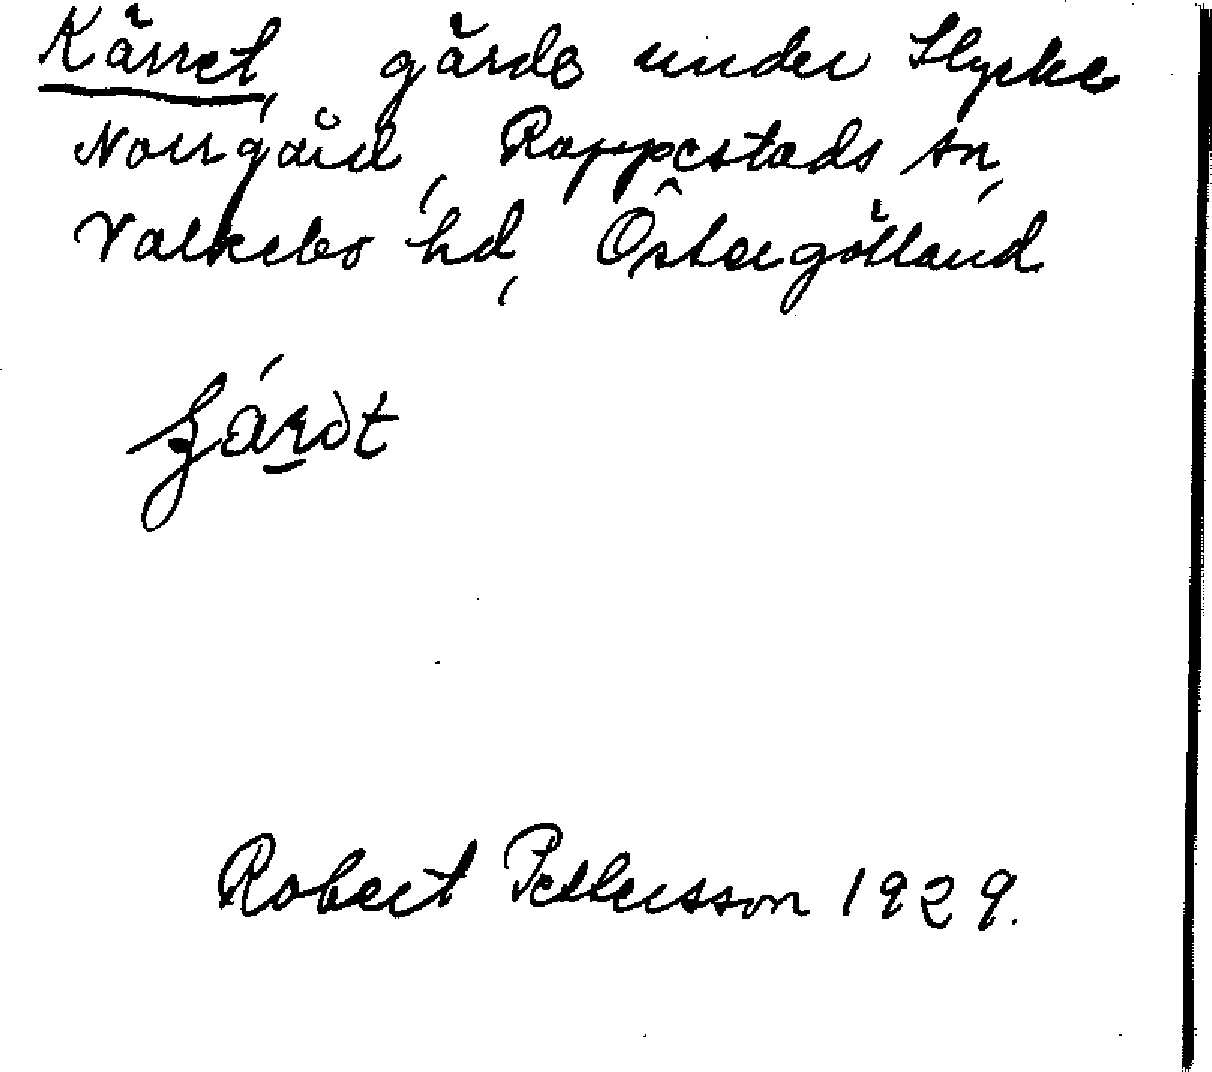 Kärret, gärde under Styrke
Norrgård, Rappestads sn,
Valkebo hd, Östergötland
Robert Pettersson 1929.